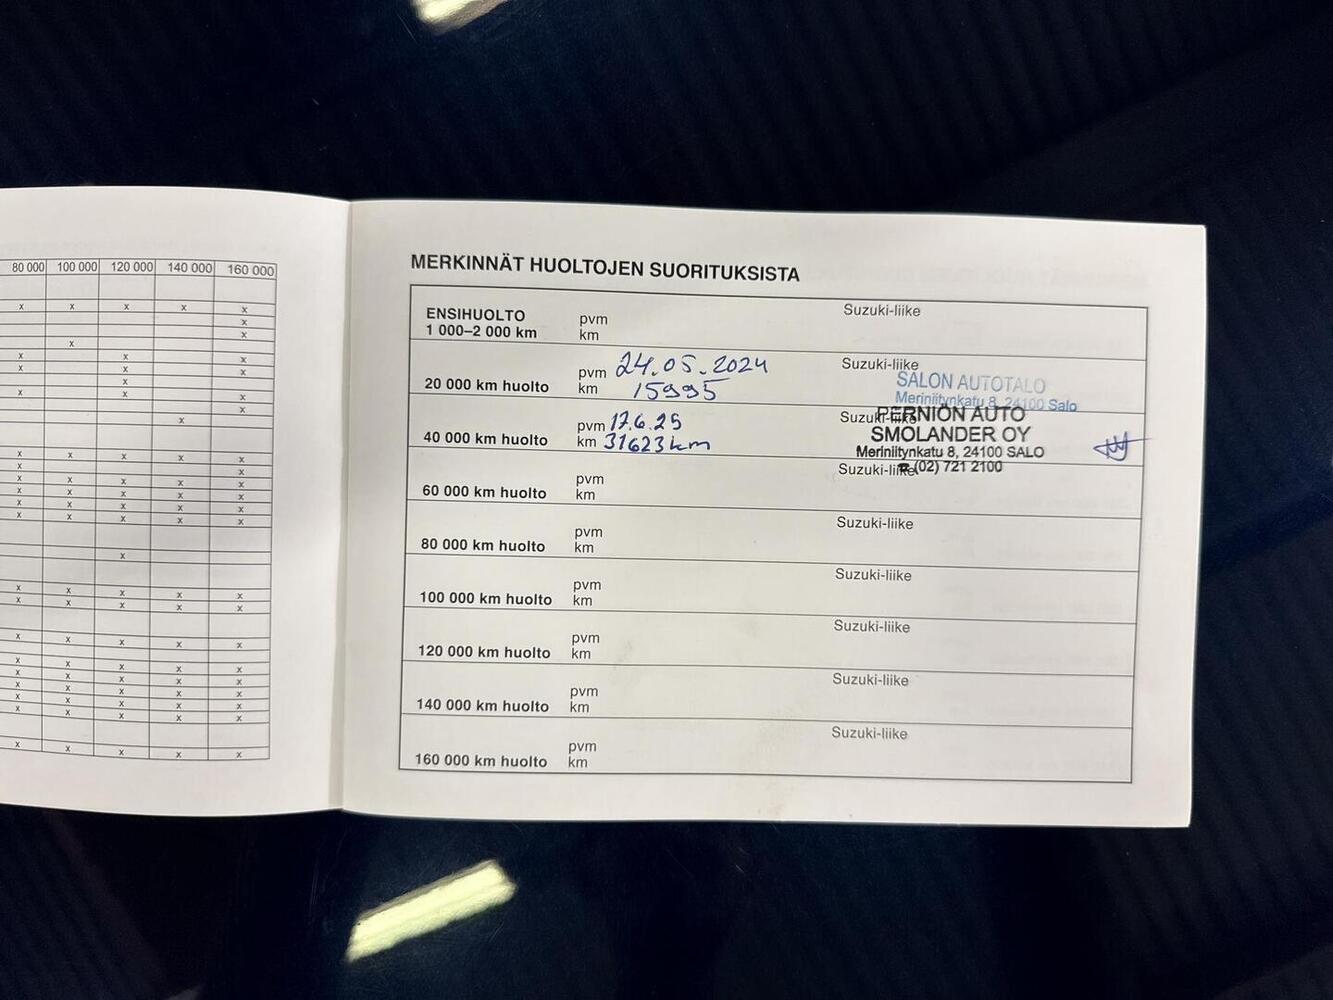 80 000 100 000 120 000 140 000 160 000
x x x x x
x
x
x
x x x
x x x
x
x x x
x
x
x x x x x
x x
x x x x x
x x x x x
x x x x x
x x x x x
x
x x x x x
x x x x x
x x x x x
x x x x x
x x x x x
x x x x x
x x x x x
x x x x x
x x x x x
MERKINNÄT HUOLTOJEN SUORITUKSISTA
ENSIHUOLTO
1 000–2 000 km
pvm
km
Suzuki-liike
20 000 km huolto
pvm 24.05.2024
km 15995
Suzuki-liike
SALON AUTOTALO
Meriniitynkatu 8, 24100 Salo
40 000 km huolto
pvm 17.6.25
km 31623km
Suzuki-liike
PERNIÖN AUTO
SMOLANDER OY
Meriniitynkatu 8, 24100 SALO
☎ (02) 721 2100
60 000 km huolto
pvm
km
Suzuki-liike
80 000 km huolto
pvm
km
Suzuki-liike
100 000 km huolto
pvm
km
Suzuki-liike
120 000 km huolto
pvm
km
Suzuki-liike
140 000 km huolto
pvm
km
Suzuki-liike
160 000 km huolto
pvm
km
Suzuki-liike